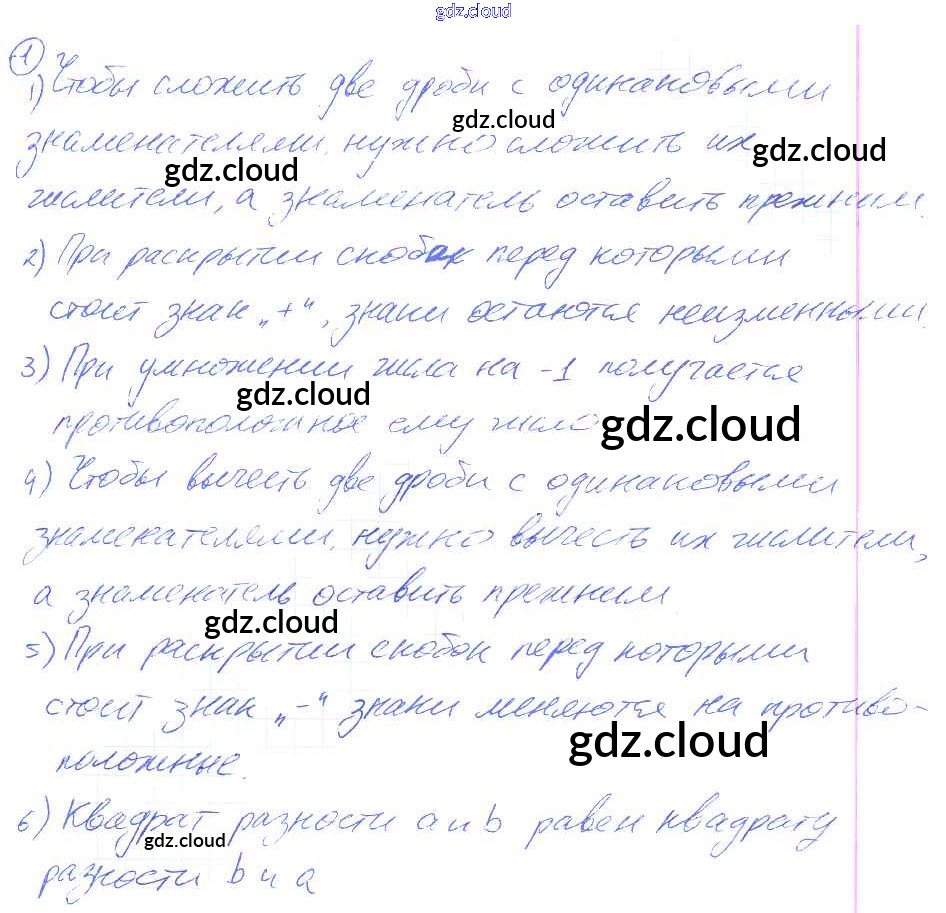 gdz.cloud
①
1) Чтобы сложить две дроби с одинаковыми
gdz.cloud
знаменателями, нужно сложить их
gdz.cloud
gdz.cloud
числители, а знаменатель оставить прежним.
2) При раскрытии скобок перед которыми
стоит знак „+“, знаки остаются неизменными.
3) При умножении числа на -1 получается
gdz.cloud
противоположное ему число
gdz.cloud
4) Чтобы вычесть две дроби с одинаковыми
знаменателями, нужно вычесть их числители,
а знаменатель оставить прежним
gdz.cloud
5) При раскрытии скобок перед которыми
стоит знак „-“ знаки меняются на противо-
gdz.cloud
положные.
6) Квадрат разности a и b равен квадрату
gdz.cloud
разности b и a